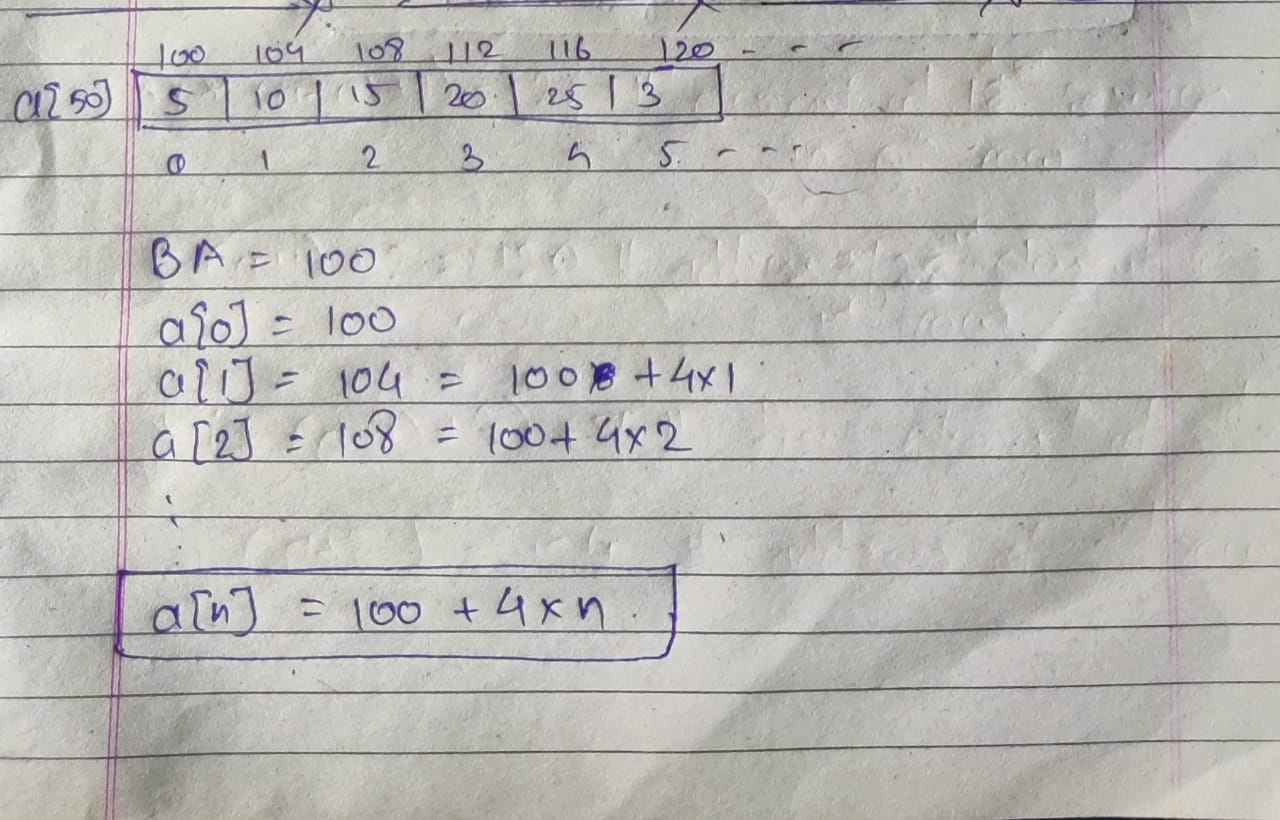 100 104 108 112 116 120 - - -
a[50] 5 | 10 | 15 | 20 | 25 | 3
0 1 2 3 4 5 - - -
BA = 100
a[0] = 100
a[1] = 104 = 100 + 4×1
a[2] = 108 = 100 + 4×2
⋮
a[n] = 100 + 4×n.